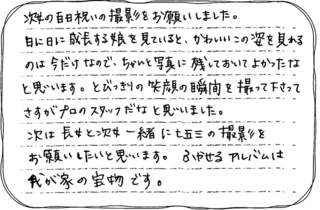 次女の百日祝いの撮影をお願いしました。
日に日に成長する娘を見ていると、かわいいこの姿を見れる
のは今だけなので、ちゃんと写真に残しておいてよかったな
と思います。とびっきりの笑顔の瞬間を撮って下さって
さすがプロのスタッフだなと思いました。
次は長女と次女一緒に七五三の撮影を
お願いしたいと思います。ふやせるアルバムは
我が家の宝物です。